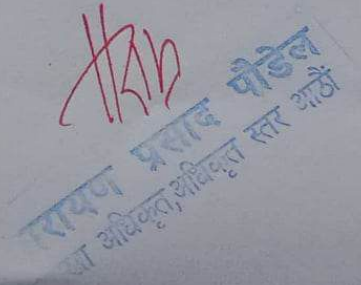 रायण प्रसाद पौडेल
खा अधिकृत,अधिकृत स्तर आठौं